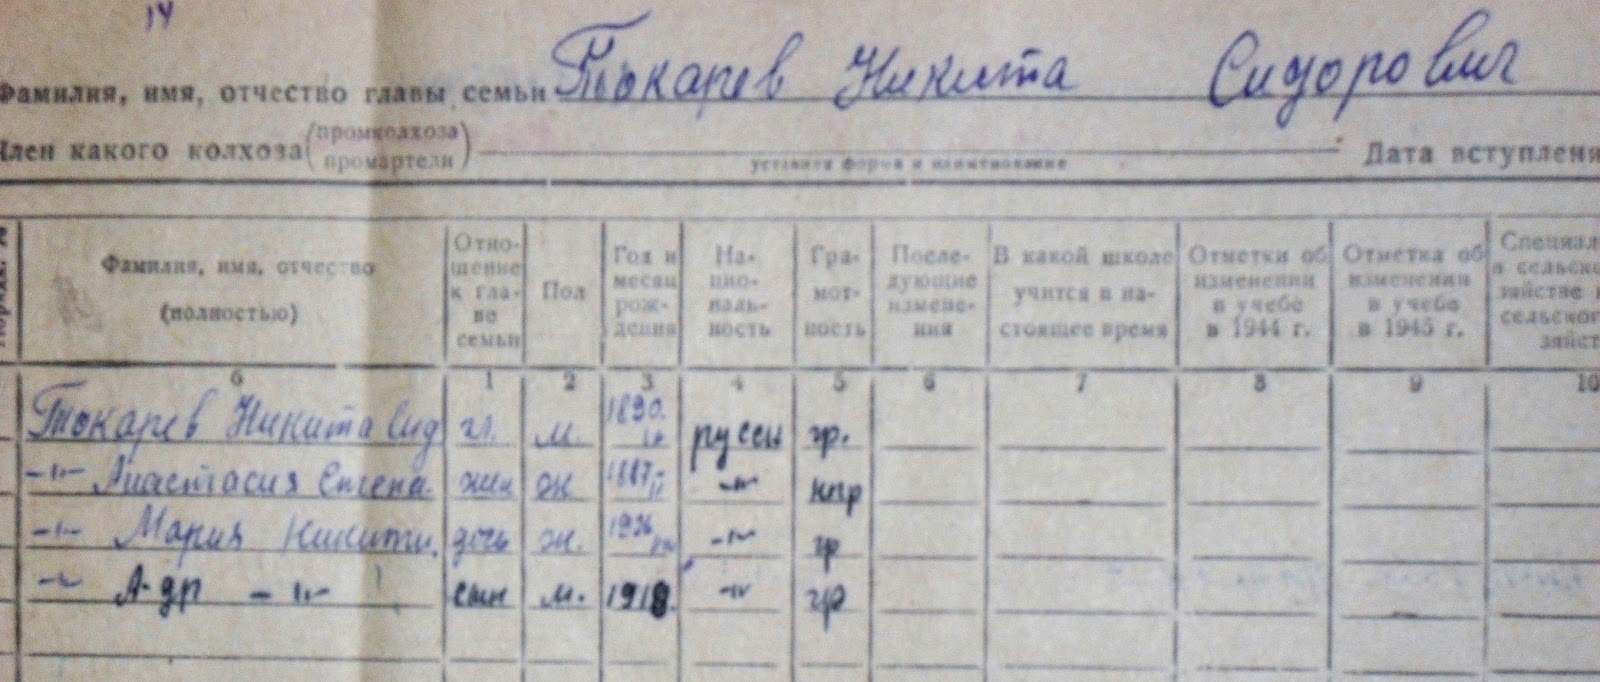 14
Фамилия, имя, отчество главы семьи Токарев Никита Сидорович
Член какого колхоза (промколхоза промартели) Дата вступлени
уставная форма и наименование
Порядк. №
Фамилия, имя, отчество (полностью)
Отношение к главе семьи
Пол
Год и месяц рождения
Национальность
Грамотность
Последующие изменения
В какой школе учится в настоящее время
Отметки об изменении в учебе в 1944 г.
Отметка об изменении в учебе в 1945 г.
Специал в сельско зяйстве сельског зяйст
б 1 2 3 4 5 6 7 8 9 10
Токарев Никита Сид гл. м. 1890. русск гр.
-"- Анастасия Степа. жен ж 1887 -"- нгр
-"- Мария Никити. дочь ж. 1926 -"- гр
-"- А-др -"- сын м. 1918. -"- гр